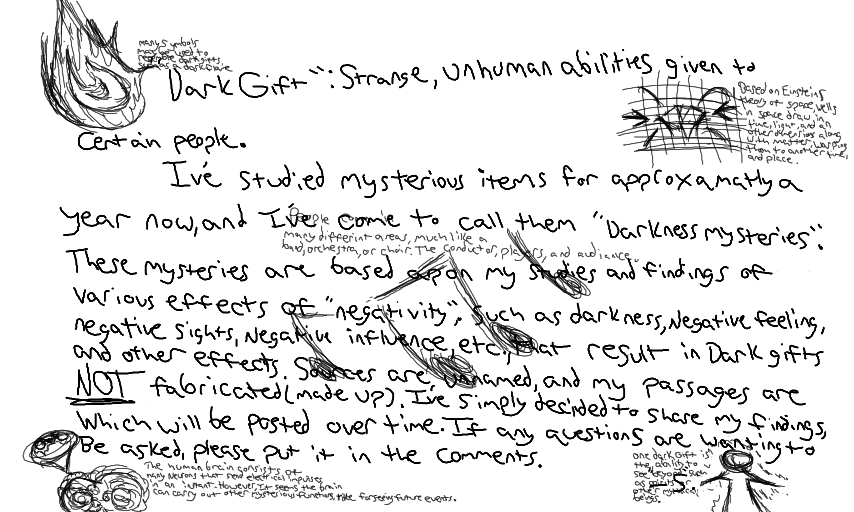 many symbols
may be used to
dark gifts,
"Dark Gift": Strange, unhuman abilities given to
Certain people.
Based on Einsteins
theory of space, wells
in space draw in
time, light, and an
other dimensions along
with matter, warping
them to another time,
and place.
I've studied mysterious items for approxamatly a
year now, and I've come to call them "Darkness mysteries".
People
many different areas, much like a
band, orchestra, or choir. The conductor, players, and audience.
These mysteries are based upon my studies and findings of
various effects of "negativity", Such as darkness, Negative feeling,
negative sights, Negative influence, etc, that result in Dark gifts
and other effects. Sources are unnamed, and my passages are
NOT fabricated (made up). I've simply decided to share my findings,
Which will be posted over time. If any questions are wanting to
Be asked, please put it in the comments.
The human brain consists of
many Neurons that send electrical impulses
in an instant. However, It seems the brain
can carry out other mysterious functions, like forseeing future events.
one dark Gift is
the ability to
see beyond, such
as spirits or
other mythical
beings.
-S